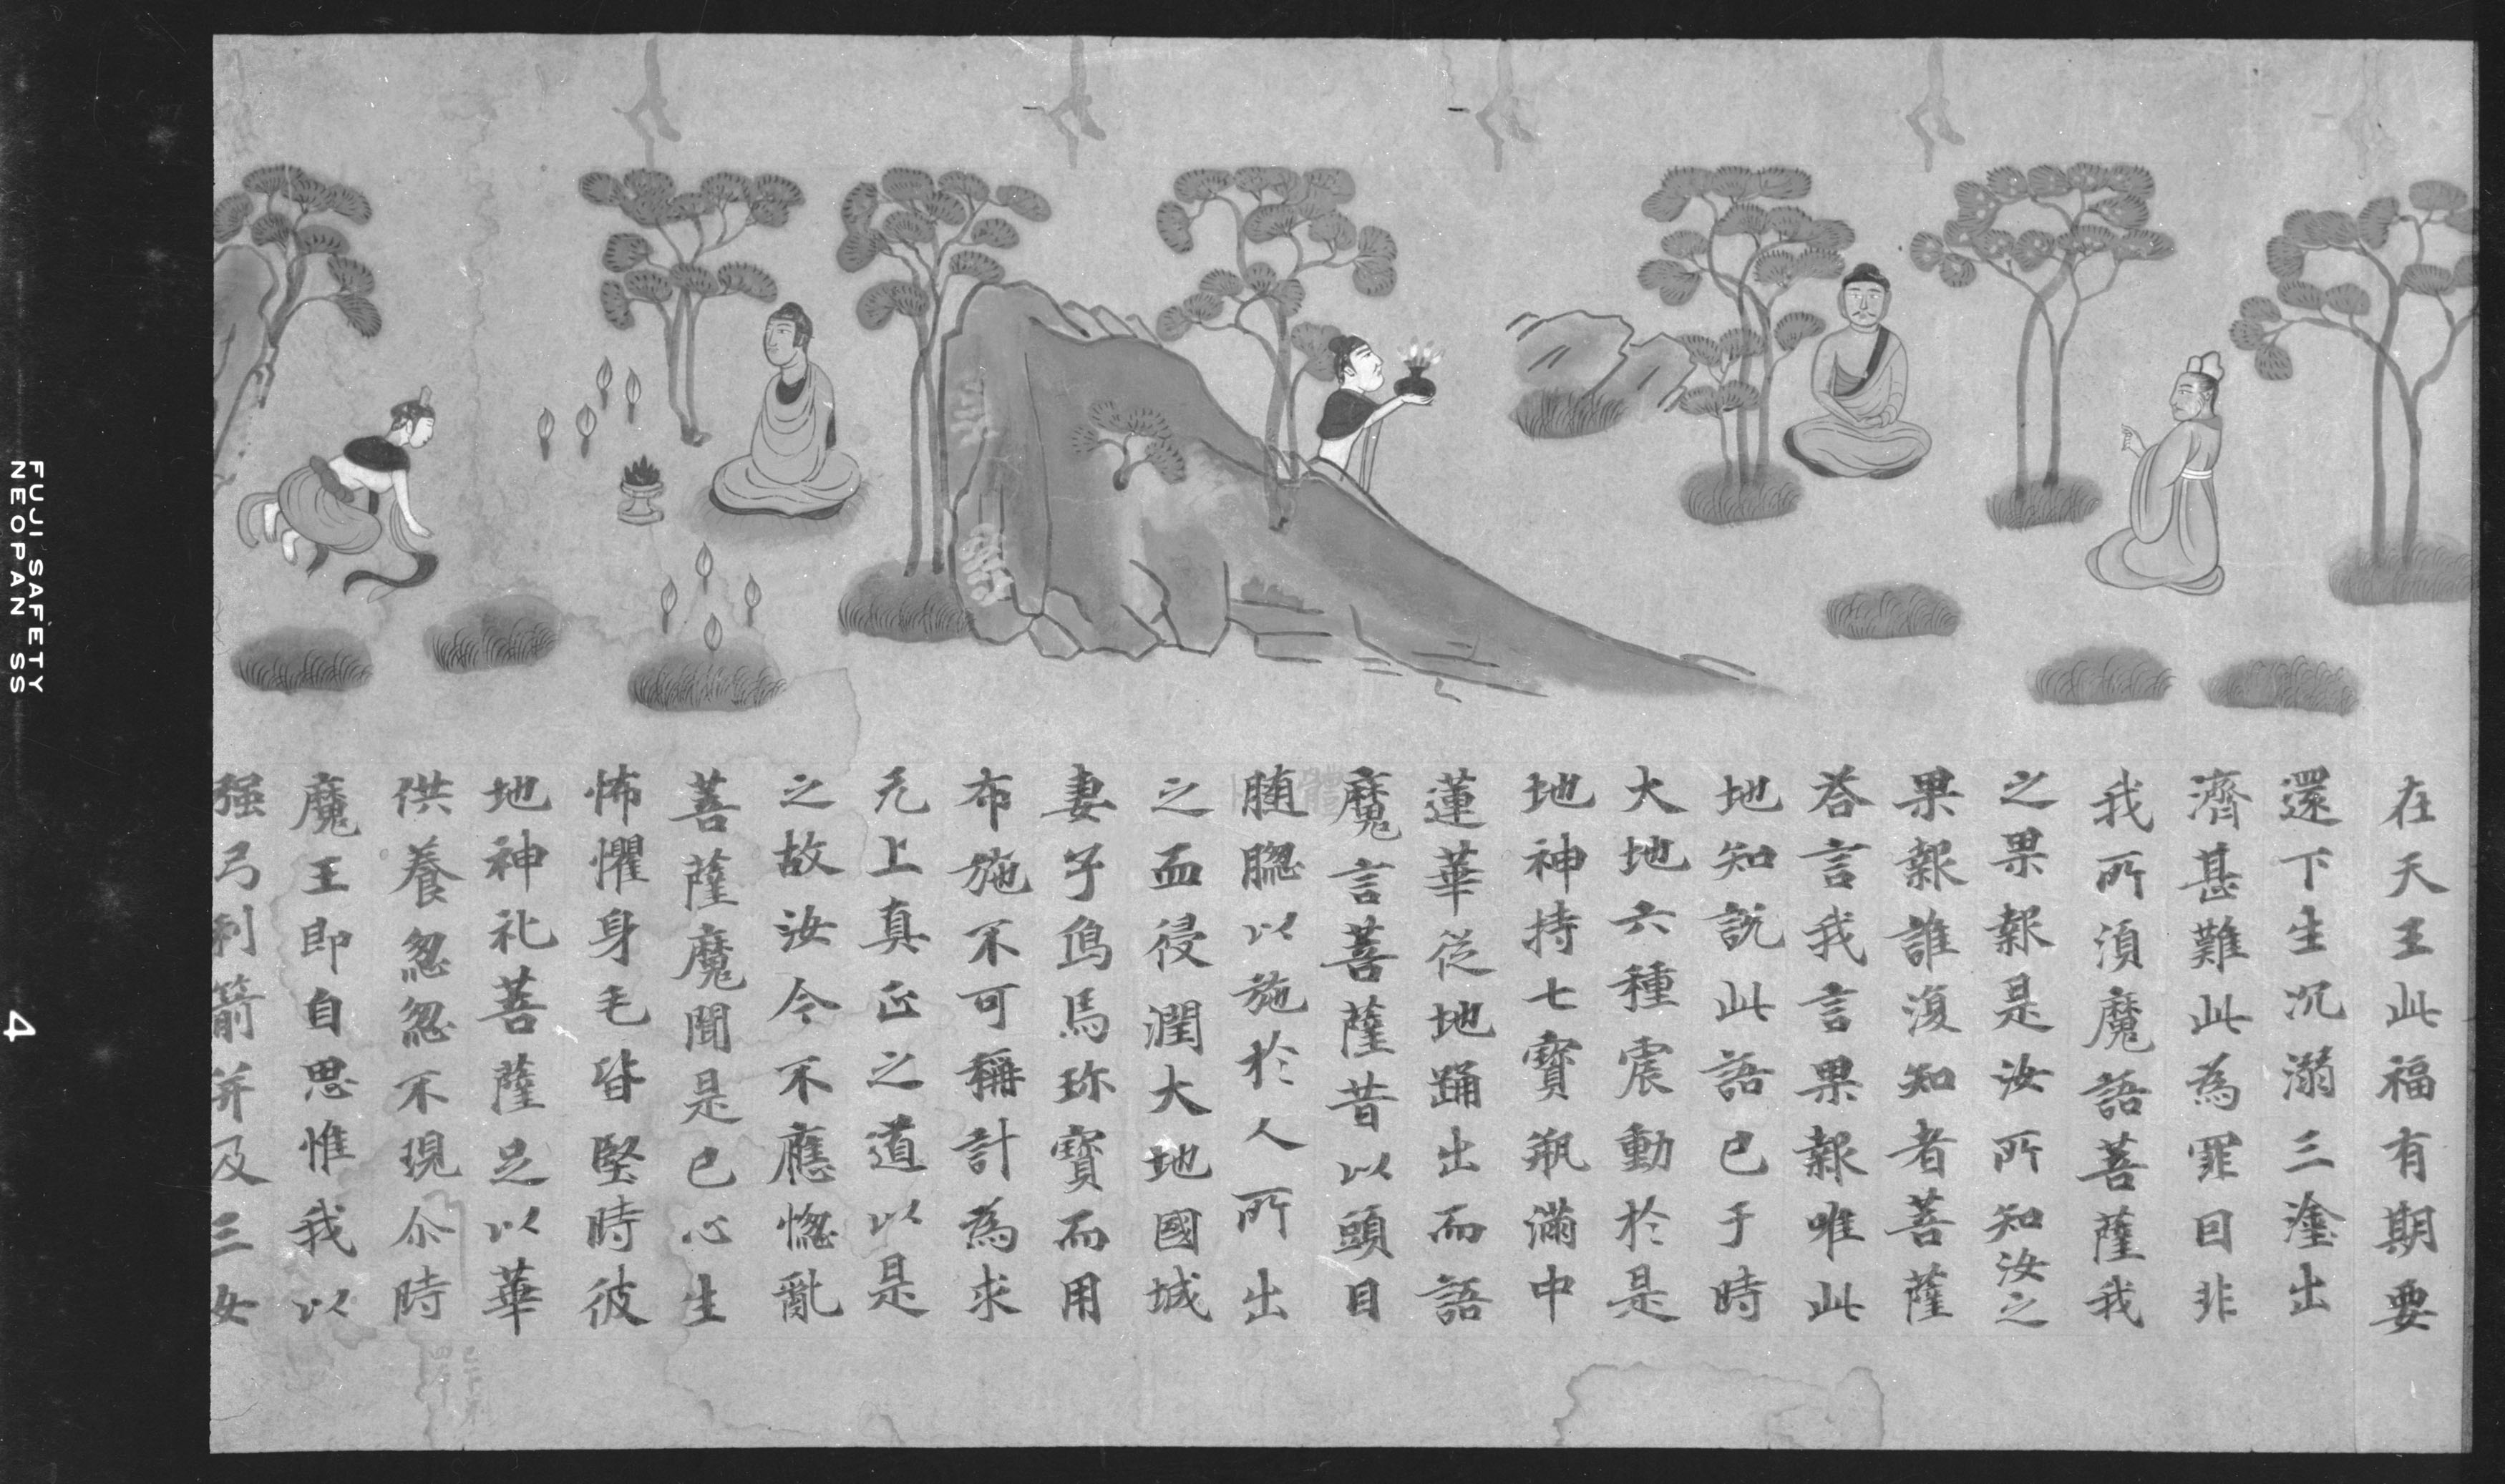 在天王此福有期要
還下生沉溺三塗出
濟甚難此為罪曰非
我所湏魔語菩薩我
之果報是汝所知汝之
果報誰復知者菩薩
荅言我言果報唯此
地知說此語已于時
大地六種震動於是
地神持七寶瓶滿中
蓮華從地踊出而語
魔言菩薩昔以頭目
䯝腦以施於人所出
之血侵潤大地國城
妻子為馬珎寶而用
布施不可稱計為求
无上真正之道以是
之故汝今不應惱亂
菩薩魔聞是已心生
怖懼身毛皆竪時彼
地神礼菩薩足以華
供養忽忽不現尒時
魔王即自思惟我以
强弓利箭并及三女
FUJI SAFETY
NEOPAN SS
4